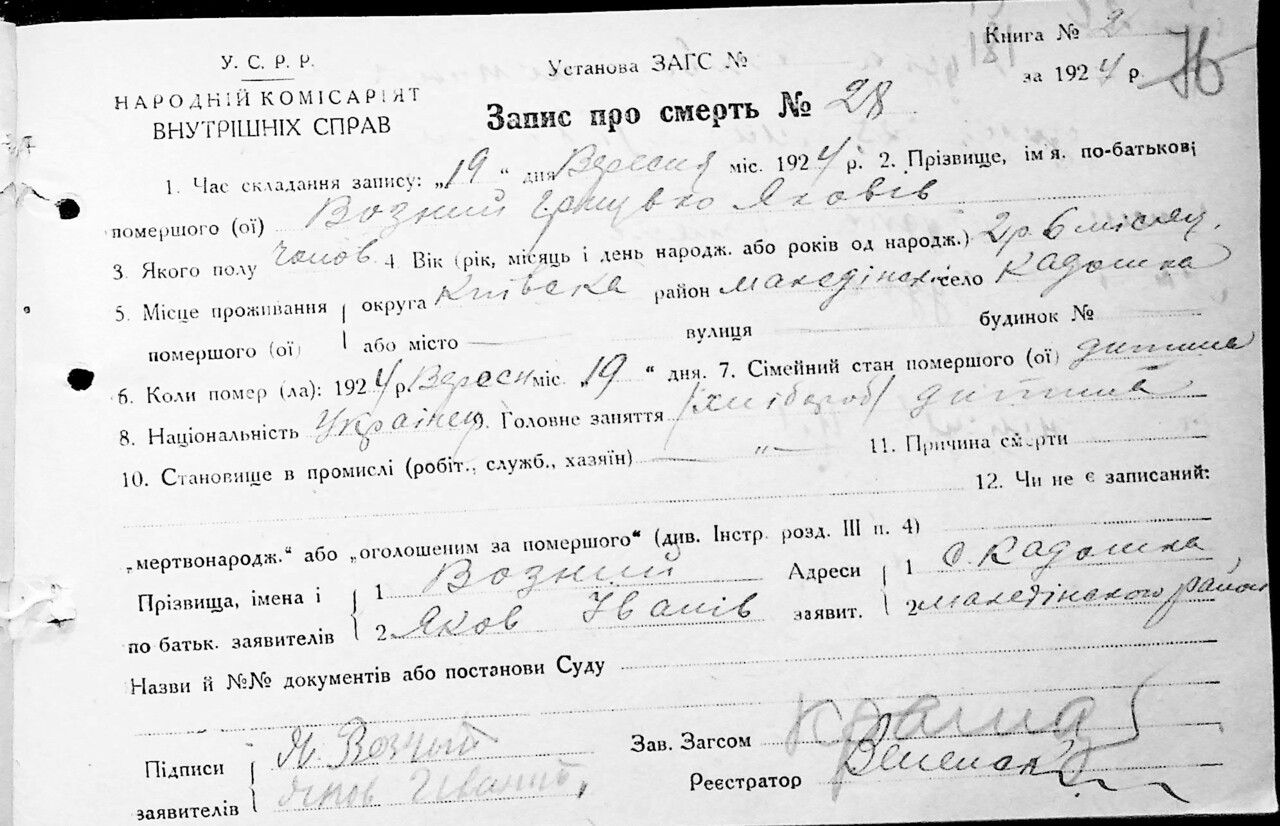 Книга № 2
У. С. Р. Р.
Установа ЗАГС №
за 1924 р. 76
НАРОДНІЙ КОМІСАРІЯТ
ВНУТРІШНІХ СПРАВ
Запис про смерть № 28
1. Час складання запису: „19 “ дня Вересня міс. 1924 р. 2. Прізвище, ім'я, по-батькові
помершого (ої) Возний Грицько Яковів
3. Якого полу чолов. 4. Вік (рік, місяць і день народж. або років од народж.) 2 р 6 місяц.
5. Місце проживання округа Київска район Макєдінск. село Кадошка
помершого (ої) або місто — вулиця — будинок № —
6. Коли помер (ла): 1924 р. Вересн міс. 19 “ дня. 7. Сімейний стан помершого (ої) дитина
8. Національність Українец 9. Головне заняття /хлібороб/ дитина
10. Становище в промислі (робіт., служб., хазяїн) — „ — 11. Причина смерти
12. Чи не є записаний:
„мертвонародж.“ або „оголошеним за помершого“ (див. Інстр. розд. III п. 4)
Прізвища, імена і 1 Возний Адреси 1 с. Кадошка
по батьк. заявителів 2 Яков Іванів заявит. 2 Макєдінского район
Назви й №№ документів або постанови Суду
Підписи Я. Возный Зав. Загсом
заявителів Яков Реєстратор